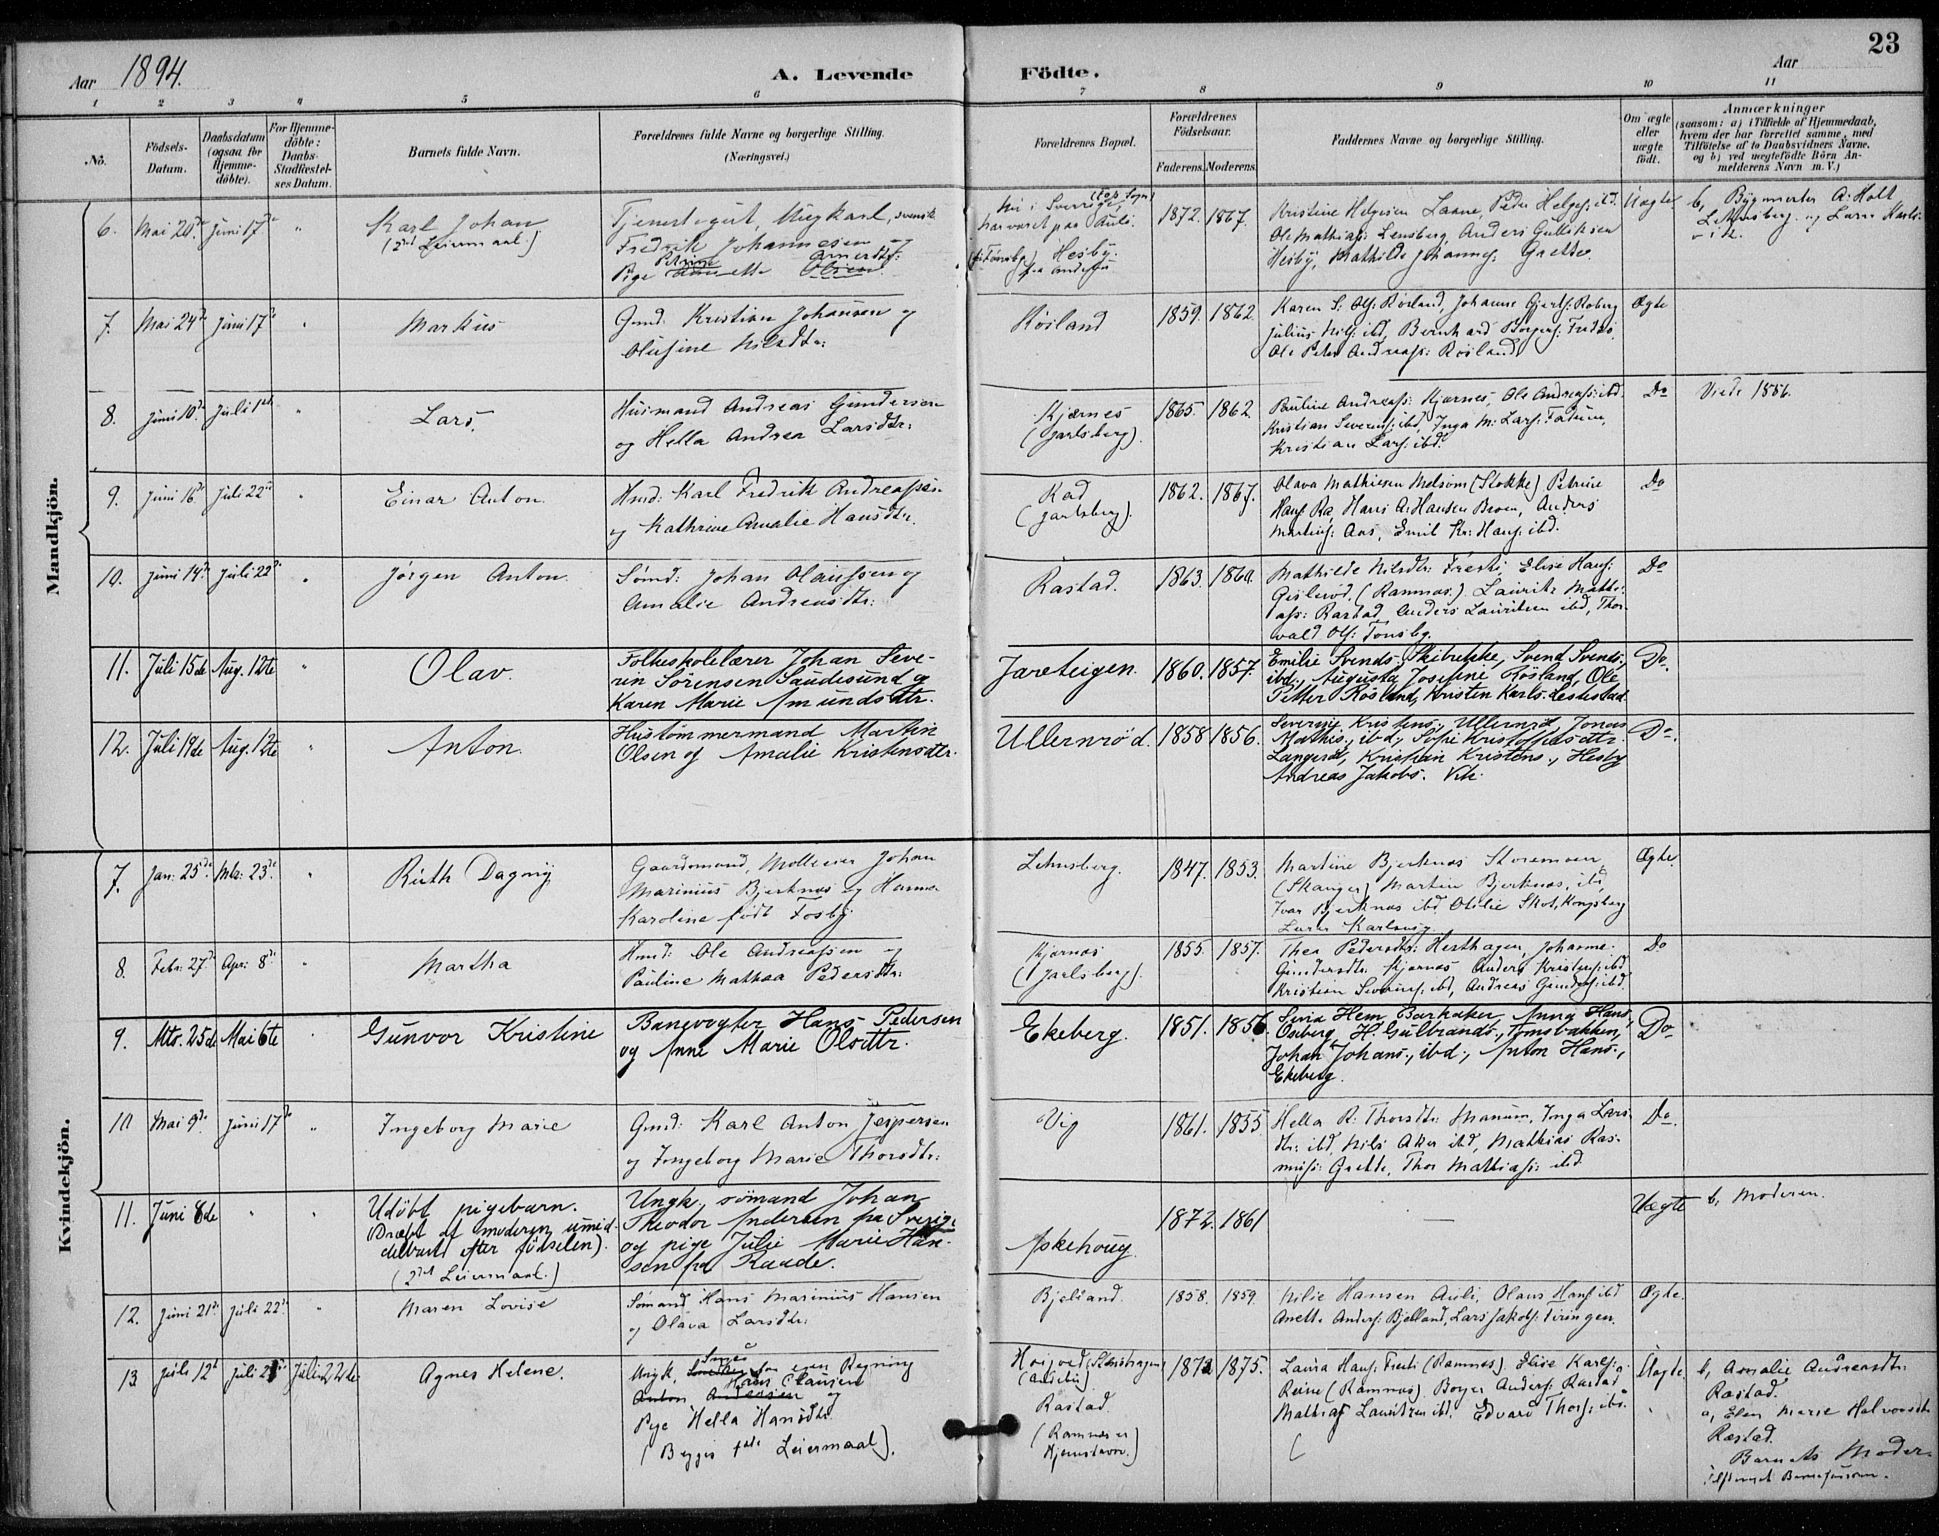 23
Aar 1894.
A. Levende Födte.
Aar
1 2 3 4 5 6 7 8 9 10 11
No.
Födsels-
Datum.
Daabsdatum
(ogsaa for
Hjemme-
döbte).
For Hjemme-
döbte:
Daabs-
Stadfæstel-
ses Datum.
Barnets fulde Navn.
Forældrenes fulde Navne og borgerlige Stilling.
(Næringsvei.)
Forældrenes Bopæl.
Forældrenes
Födselsaar.
Faderens. Moderens.
Faddernes Navne og borgerlige Stilling.
Om ægte
eller
uægte
födt.
Anmærkninger
(saasom: a) i Tilfælde af Hjemmedaab,
hvem der har forrettet samme, med
Tilföielse af to Daabsvidners Navne,
og b) ved uægtefödte Börn An-
melderens Navn m. V.)
Mandkjön.
6. Mai 20de Juni 17de " Karl Johan
(2det Leiermaal)
Tjenestegut, Ungkarl, svensk
Fredrik Johannesen og
Pige Petrine
Hesby.
1872. 1867.
Kristine Helgesen Laane, Peder Helges: ibd.
Ole Mathias: Lensberg, Anders Gulliksen
Hesby, Mathilde Johannes: Grette.
Uægte
b, Bygmester A. Holt
7. Mai 24de Juni 17de " Markus
Gmd: Kristian Johansen og
Olufine Nilsdtr:
Rösland 1859. 1862.
Karen S. Ols: Rösland, Johanne Gjerts: Roberg
Julius Nils: ibd, Bernhard Borgers: Fredes
Ole Peter Andreass: Rösland
Ægte
8. Juni 10de Juli 1ste " Lars.
Husmand Andreas Gundersen
og Hella Andrea Larsdtr:
Kjærnes
(Jarlsberg).
1865. 1862.
Pauline Andreass: Kjærnes, Ole Andreass: ibd.
Kristian Severins: ibd, Inga M: Lars: Fadum,
Kristian Lars: ibd.
Do
Viede 1886.
9. Juni 16de Juli 22de " Einar Anton.
Hmd: Karl Fredrik Andreassen
og Kathrine Amalie Hansdtr.
(Jarlsberg).
1862. 1867.
Olava Mathiesen Melsom (Stokke) Petrine
Hans: Ra, Hans A: Hansen Broen, Anders
Martins: Aas, Emil Kr: Hans: ibd.
Do
10. Juni 14de Juli 22de " Jörgen Anton.
Sömd: Johan Olaussen og
Amalie Andreasdtr:
Rastad. 1863. 1860.
Mathilde Nilsdtr: Fresti, Elise Hans:
Gislerød, (Ramnæs) Lauritz Mathi-
ass: Rastad, Anders Lauritsen ibd, Thor-
vald Ols: Tonsbg.
Do
11. Juli 15de Aug. 12te " Olav.
Folkeskolelærer Johan Seve-
rin Sörensen Sandesund og
Karen Marie Amundsdtr.
Jareteigen. 1860. 1857.
Emilie Svends. Skibrekke, Svend Svends.,
ibd., Augusta Josefine Rösland, Ole
Petter Rösland, Kristen Karls. Lestestad
Do.
12. Juli 19de Aug. 12te " Anton.
Hustömmermand Martin
Olsen og Amalie Kristensdtr.
Ullernröd. 1858 1856.
Severine Kristens., Ullernröd, Jonas
Mathis., ibd., Sofie Kristoffersdtr.
Langeröd, Kristian Kristens., Hesby
Andreas Jakobs. Vik.
Do.
Kvindekjön.
7. Jan: 25de Mts: 23de " Ruth Dagny
Gaardmand, Mölleeier Johan
Marinius Bjerknæs og Hanna
Karoline født Fosby.
Lehnsberg. 1847. 1853.
Martine Bjerknæs Storemoen
(Skanger) Martin Bjerknæs, ibd,
Ivar Bjerknæs ibd, Otilie Skot, Kongsberg
Ægte.
8. Febr: 27de Apr: 8de " Martha
Hmd: Ole Andreassen og
Pauline Mathea Pedersdtr:
Kjærnæs
(Jarlsberg).
1855. 1857.
Thea Pedersdtr: Hesthagen, Johanne
Gundersdtr: Kjærnæs, Anders Kristens: ibd
Kristian Severins: ibd, Andreas Gunders: ibd.
Do
9. Mts. 25de Mai 6te " Gunvor Kristine
Banevogter Hans Pedersen
og Anne Marie Olsdtr.
Ekeberg. 1851. 1856.
Hem, Barkaker, Anna Hans.,
Oseberg, H. Gulbrands., Tomsbakken,
Johan Johans., ibd., Anton Hans.,
Ekeberg.
Do
10 Mai 9de Juni 17de " Ingeborg Marie
Gmd: Karl Anton Jespersen
og Ingeborg Marie Thorsdtr:
Vig 1861. 1855
Hella R: Thorsdtr: Manum, Inga Lars-
dtr: ibd, Nils Aker ibd, Mathias Ras-
muss: Grette, Thor Mathiass: ibd.
Do.
11. Juni 8de " " Udöbt pigebarn.
(Dræbt af moderen umid-
delbart efter födselen).
(2det Leiermaal.)
Ungk., sömand Johan
Theodor Andersen fra Sverige
og pige Julie Marie Han-
sen fra Raade.
Askehoug. 1872. 1861
—
Uægte
b, Moderen.
12. Juni 21de Juli 22de " Maren Lovise
Sömand Hans Marinius Hansen
og Olava Larsdtr:
Bjelland. 1858. 1859.
Nilie Hansen Auli, Olaus Hans: ibd
Anette Anders: Bjelland, Lars Jakobs: Tveringen.
Ægte.
13 Juli 12te Juli 22de Agnes Helene.
Ungk. for egen Regning
Hans Clausen
Anton Andersen og
Pige Hella Hansdtr
(Begges 1ste Leiermaal).
Rastad.
(Ramnæs er
Hjemstavn.)
1872 1875.
Laura Hans: Fresti (Ramnæs) Elise Karls:
Reine (Ramnæs), Borger Anders: Rastad
Mathias Lauritsen ibd. Edvard Thors: ibd.
Uægte.
b, Amalie Andreasdtr:
Rastad.
a, Elen Marie Halvorsdtr
Rastad.
Barnets Moder